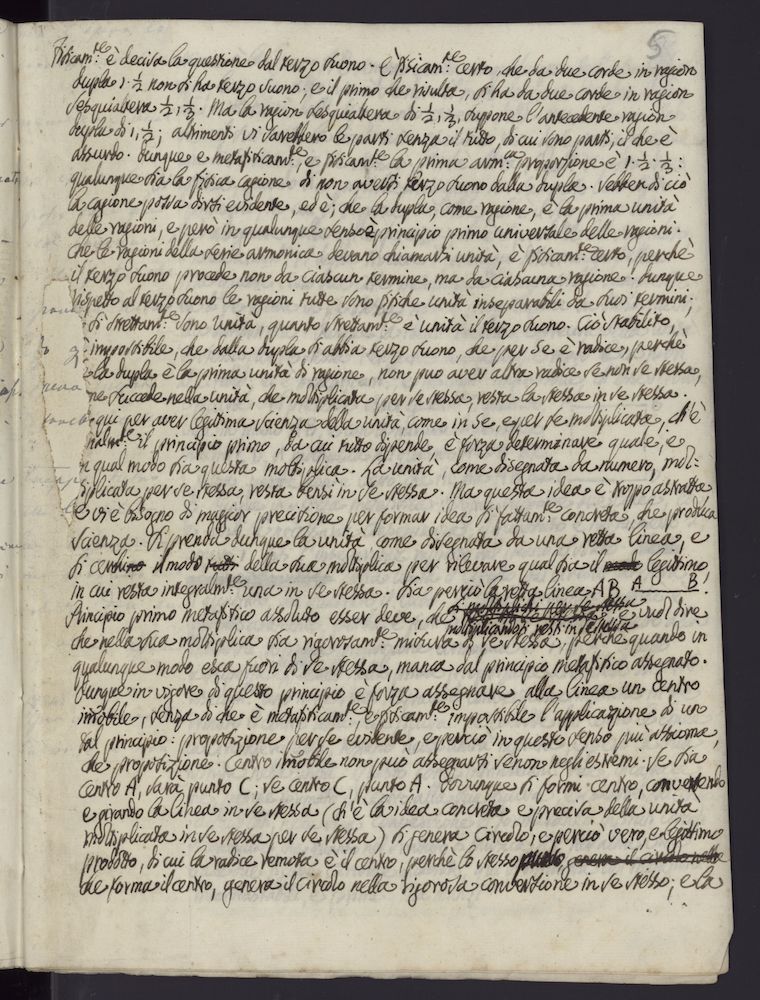 5
Fisicam:te è decisa la questione dal terzo suono. È fisicam:te certo, che da due corde in ragion
dupla 1. ½ non si ha terzo suono; e il primo che risulta, si ha da due corde in ragion
sesquialtera ½, ⅓. Ma la ragion sesquialtera di ½, ⅓, suppone l'antecedente ragion
dupla di 1, ½; altrimenti vi sarebbero le parti senza il tutto, di cui sono parti, il che è
assurdo. Dunque e metafisicam:te, e fisicam:te la prima arm:ca proporzione è 1. ½. ⅓:
qualunque sia la fisica cagione di non aversi terzo suono dalla dupla. Sebben di ciò
la cagione possa dirsi evidente, ed è; che la dupla, come ragione, è la prima unità
delle ragioni, e però in qualunque senso è principio primo universale delle ragioni.
Che le ragioni della serie armonica devano chiamarsi unità, è fisicam:te certo, perchè
il terzo suono procede non da ciascun termine, ma da ciascuna ragione. Dunque
rispetto al terzo suono le ragioni tutte sono fisiche unità inseparabili da suoi termini;
si strettam:te sono unità, quanto strettam:te è unità il terzo suono. Ciò stabilito,
impossibile, che dalla dupla si abbia terzo suono, che per se è radice, perchè
la dupla è la prima unità di ragione, non può aver altra radice se non se stessa,
ne succede nella unità, che moltiplicata per se stessa, resta la stessa in se stessa.
qui per aver legitima scienza della unità, come in se, e per se moltiplicata, ch'è
il principio primo, da cui tutto dipende, è forza determinare quale, e
n qual modo sia questa moltiplica. La unità, come disegnata da numero, mol:
tiplicata per se stessa resta bensì in se stessa. Ma questa idea è troppo astratta
e vi è bisogno di maggior precisione per formar idea sifattam:te concreta, che produca
scienza. Si prenda dunque la unità come disegnata da una retta linea, e
si il modo della sua moltiplica per rilevare qual sia il legitimo,
in cui resta integralm:te una in se stessa. Sia perciò la retta linea AB A B.
Principio primo metafisico assoluto esser deve, che moltiplicandosi resti in se stessa il che vuol dire
che nella sua moltiplica sia rigorosam:te misura di se stessa, perchè quando in
qualunque modo esca fuori di se stessa, manca dal principio metafisico assegnato.
Dunque in vigore di questo principio è forza assegnare alla linea un centro
imobile, senza di che è metafisicam:te, e fisicam:te impossibile l'applicazione di un
tal principio: proposizione per se evidente, e perciò in questo senso più assioma,
che proposizione. Centro imobile non può assegnarsi se non negli estremi. Se sia
centro A, sarà punto C; se centro C, punto A. Dovunque si formi centro, convertendo
e girando la linea in se stessa (ch'è la idea concreta e precisa della unità
moltiplicata in se stessa per se stessa) si genera circolo; e perciò vero, e legitimo
prodotto, di cui la radice remota è il centro, perchè lo stesso punto
che forma il centro, genera il circolo nella rigorosa conversione in se stesso; e la